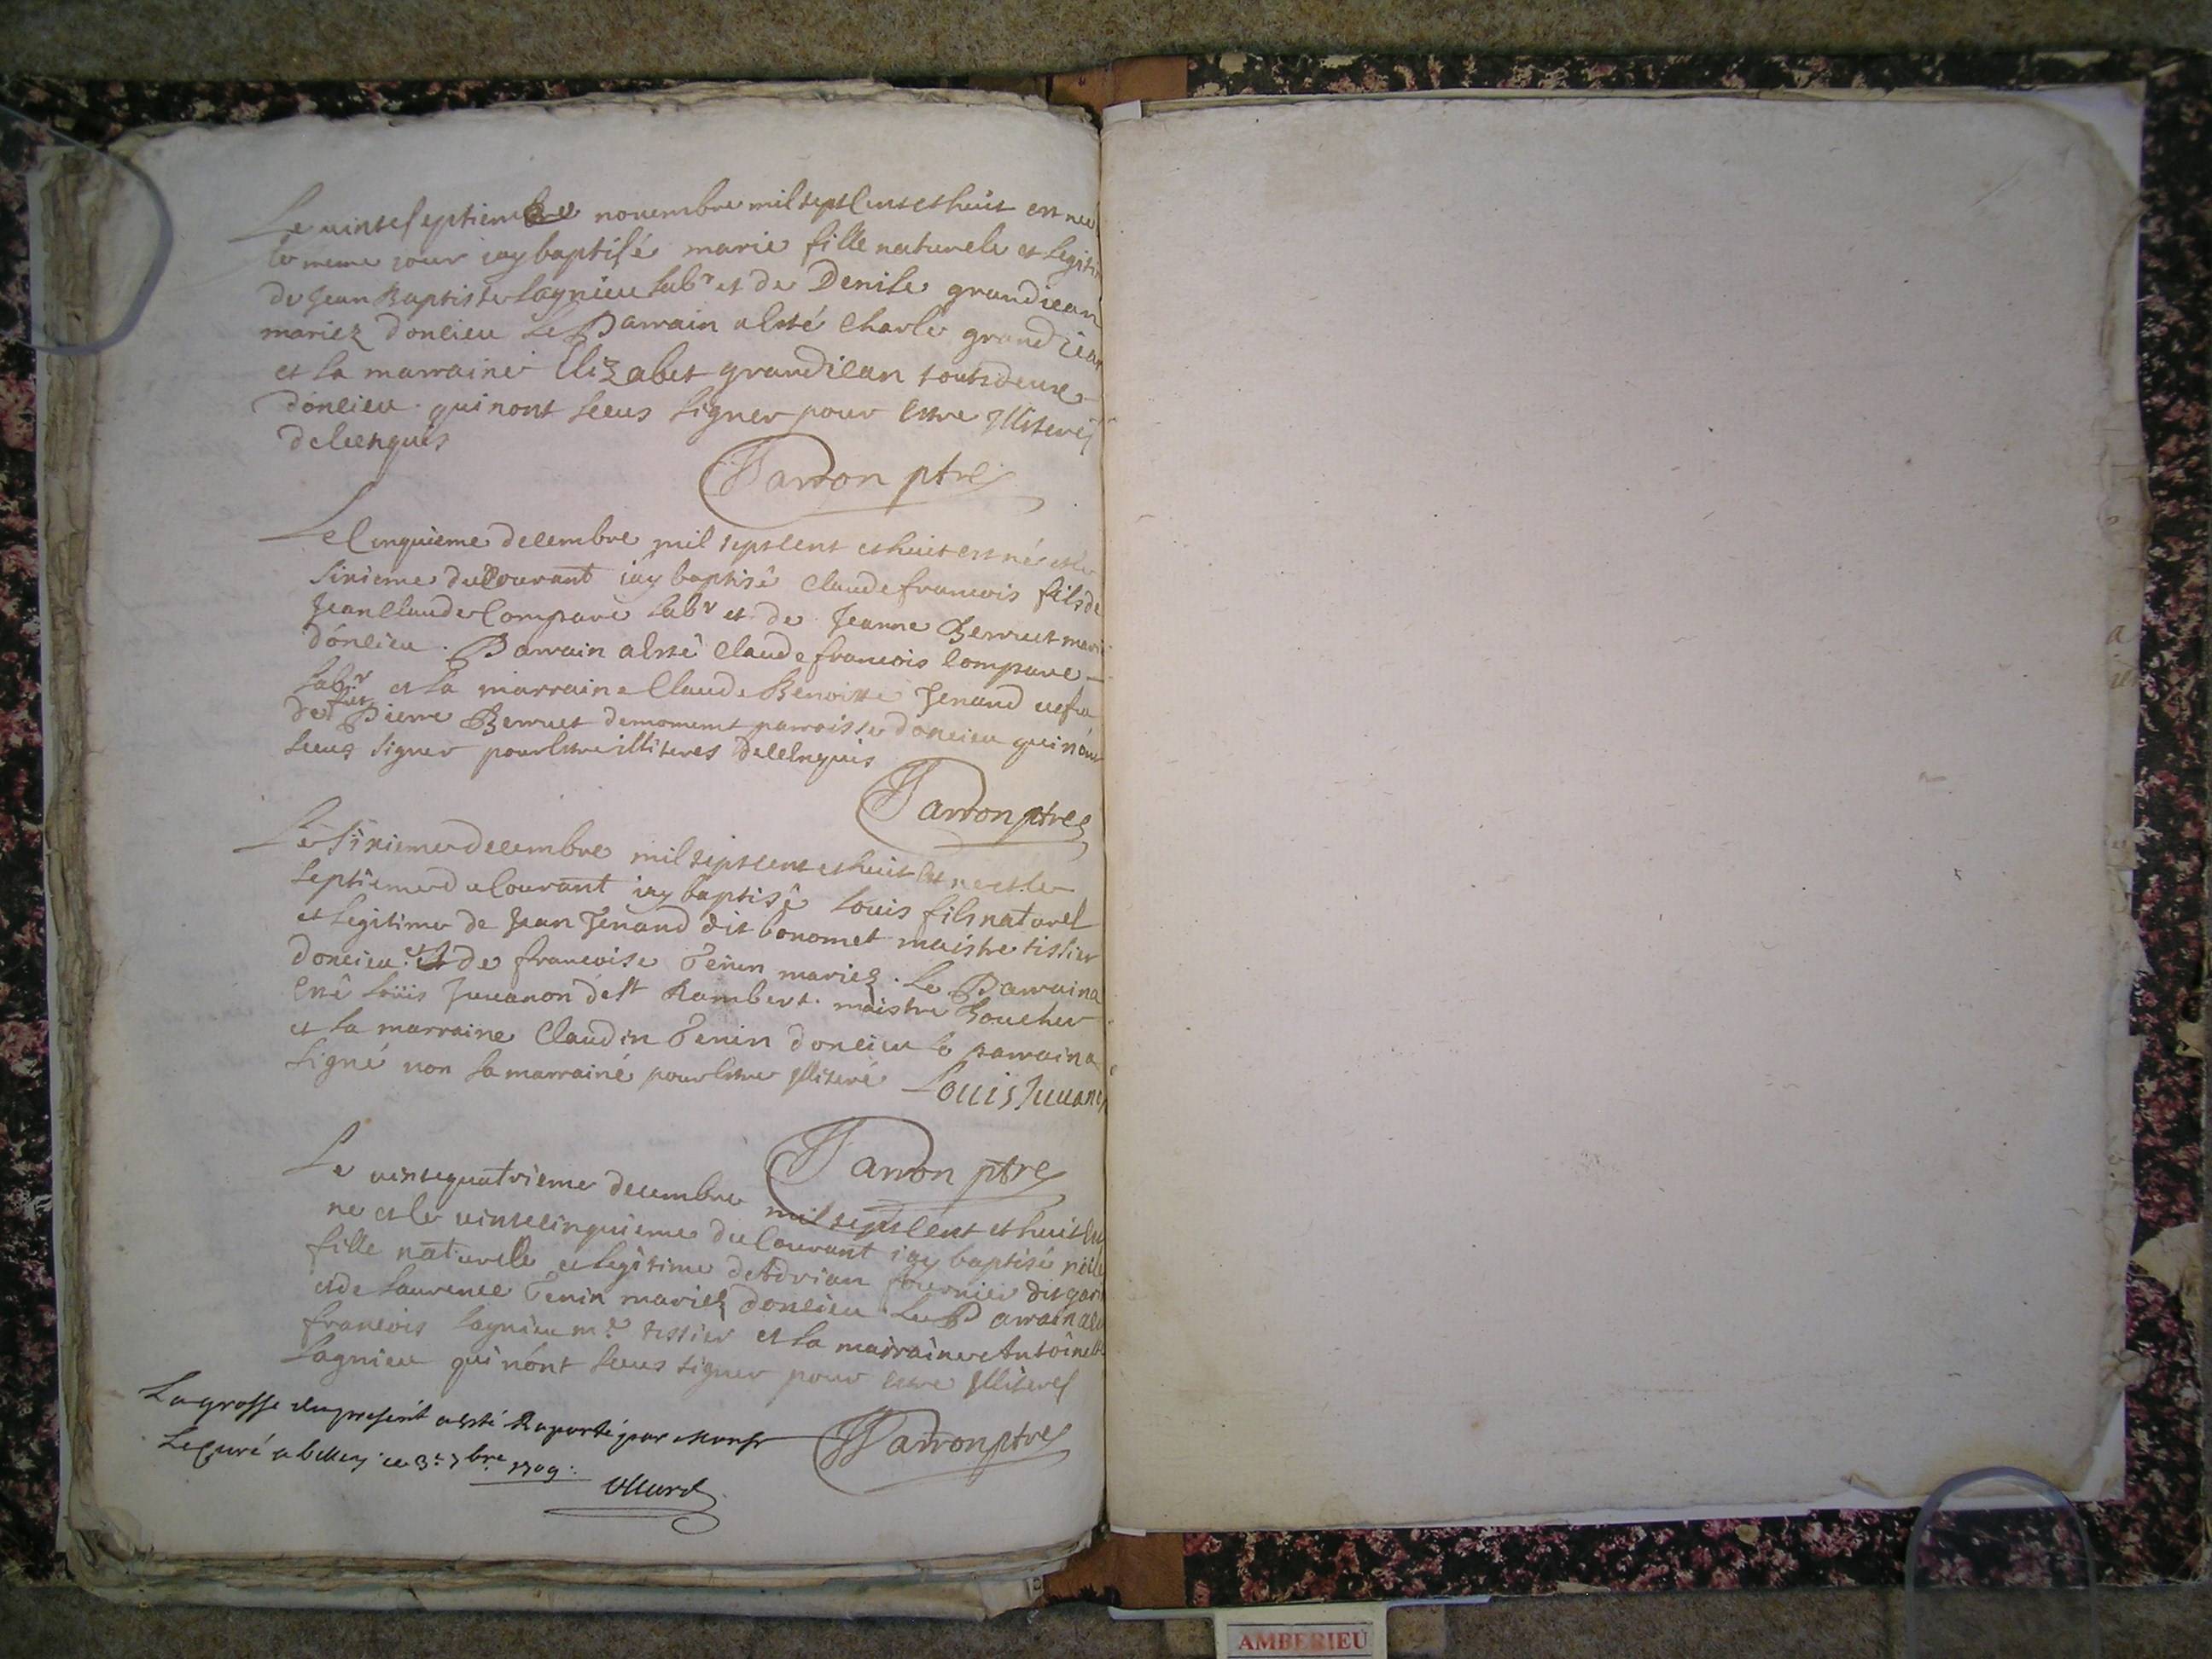 Le vinteseptiembre novembre mil sept cents et huit est nee
le meme jour iay baptisé marie fille naturele et legiti
de Jean Baptiste lagnieu labr et de Denise grandiean
mariez doncieu Le Parrain a esté Charle grandjean
et la marraine Elizabet grandiean touts deux
doncieu qui nont sceus signer pour estre Illiterés
de ce enquis
Parron ptre
Le Cinquieme decembre mil sept cent et huit est né et le
sixieme du Courant iay baptisé Claude francois fils de
Jean Claude Compare labr et de Jeanne Berruet mari
doncieu. Parrain a esté Claude francois Compare
labr et la marraine Claude Benoitte Jenand
de feu Pierre Berruet de moment parroisse doncieu qui nont
sceus signer pour estre illiteres de ce enquis
Parron ptre
Le Sixieme decembre mil sept cent et huit est né et le
septieme du Courant iay baptisé Louis fils naturel
et legitime de Jean Jenand dit bonomet maistre tissier
doncieu et de francoise Tenin mariez. Le Parrain a
esté Loüis Juuanon de st Rambert maistre Boucher
et la marraine Claudin Tenin doncieu le parrain a
signé non la marraine pour estre Illiteré
Louis Juuanon
Parron ptre
Le vintequatrieme decembre mil sept cent et huit est
ne et le vintecinquieme du Courant iay baptisé
fille naturelle et legitime de Adrian fournier dit
et de Laurence Tenin mariez doncieu Le Parrain a
francois lagnieu me tissier et la marraine Antoinett
lagnieu qui nont sceus signer pour estre Illiteres
Parron ptre
La grosse du present a esté Raporté par Monsr
Le Curé a belley ce 3e 7bre 1709